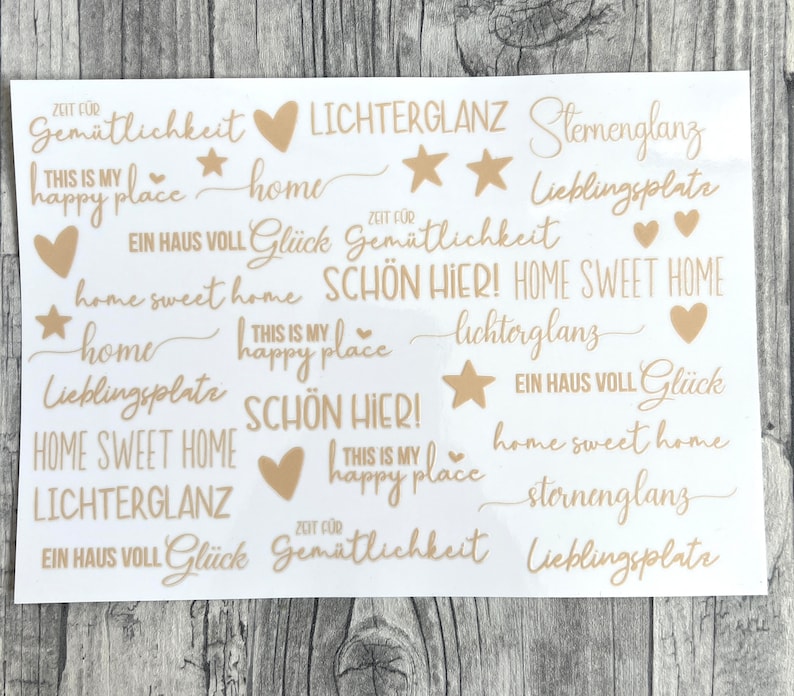 ZEIT FÜR
Gemütlichkeit
LICHTERGLANZ
Sternenglanz
THIS IS MY
happy place
home
Lieblingsplatz
EIN HAUS VOLL Glück
ZEIT FÜR
Gemütlichkeit
home sweet home
SCHÖN HiER!
HOME SWEET HOME
home
THIS IS MY
happy place
lichterglanz
Lieblingsplatz
SCHÖN HiER!
EIN HAUS VOLL Glück
HOME SWEET HOME
THIS IS MY
happy place
home sweet home
LICHTERGLANZ
sternenglanz
EIN HAUS VOLL Glück
ZEIT FÜR
Gemütlichkeit
Lieblingsplatz